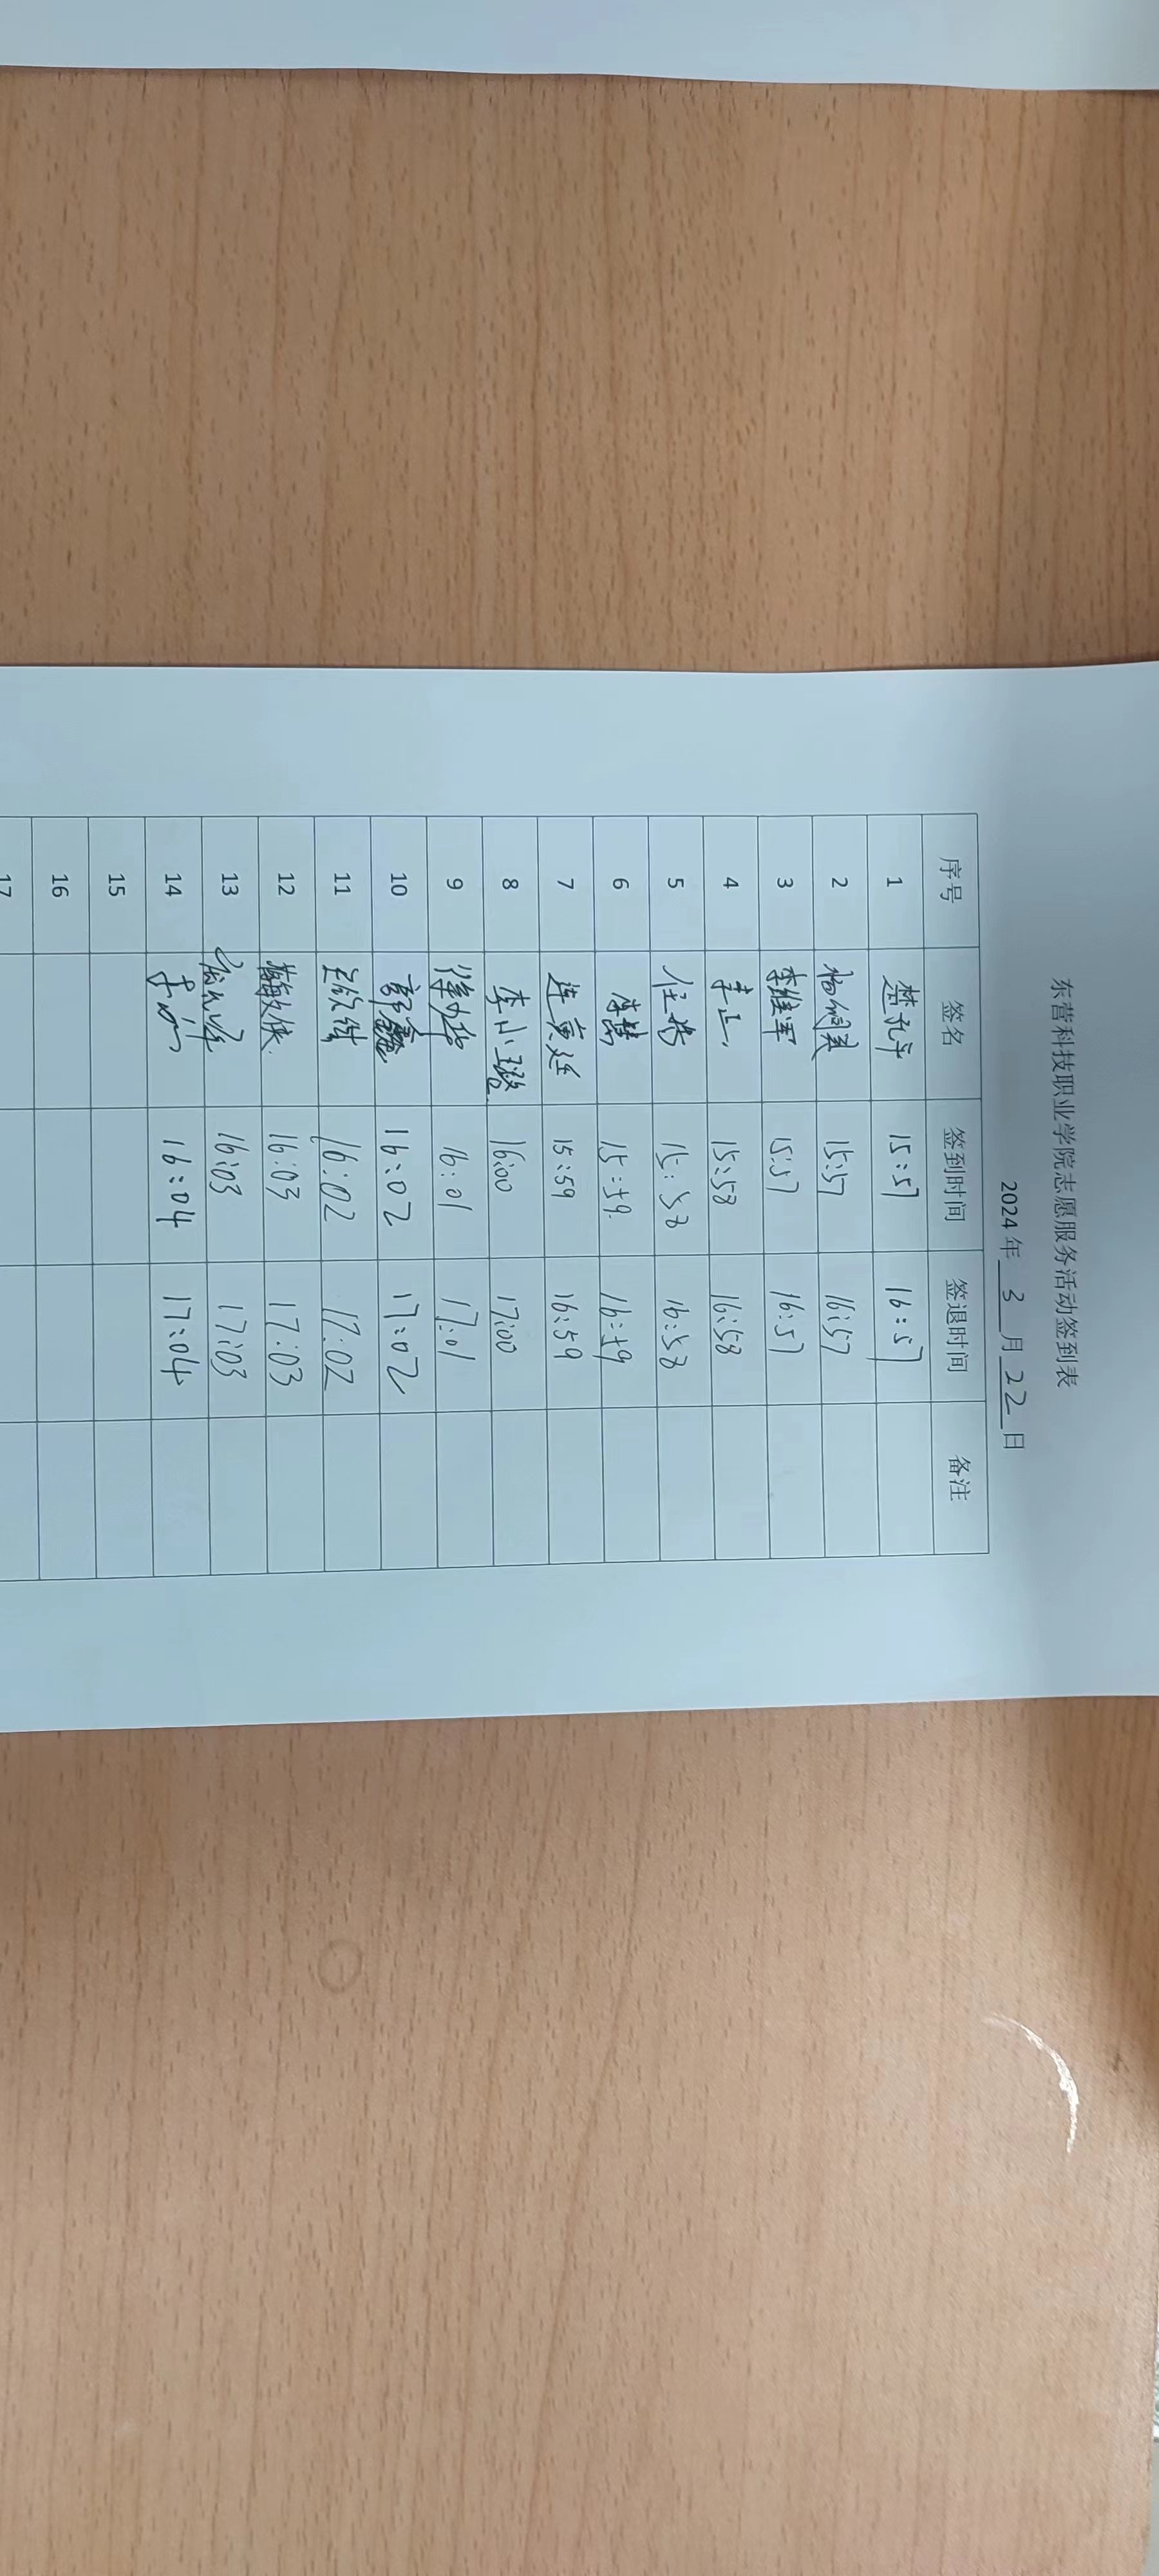 东营科技职业学院志愿服务活动签到表
2024年 3 月 22 日
序号 签名 签到时间 签退时间 备注
1 楚礼平 15:57 16:57
2 15:57 16:57
3 李继军 15:57 16:57
4 李正 15:58 16:58
5 任 15:58 16:58
6 15:59 16:59
7 连寅廷 15:59 16:59
8 李小璇 16:00 17:00
9 16:01 17:01
10 郭鑫 16:02 17:02
11 16:02 17:02
12 16:03 17:03
13 16:03 17:03
14 16:04 17:04
15
16
17